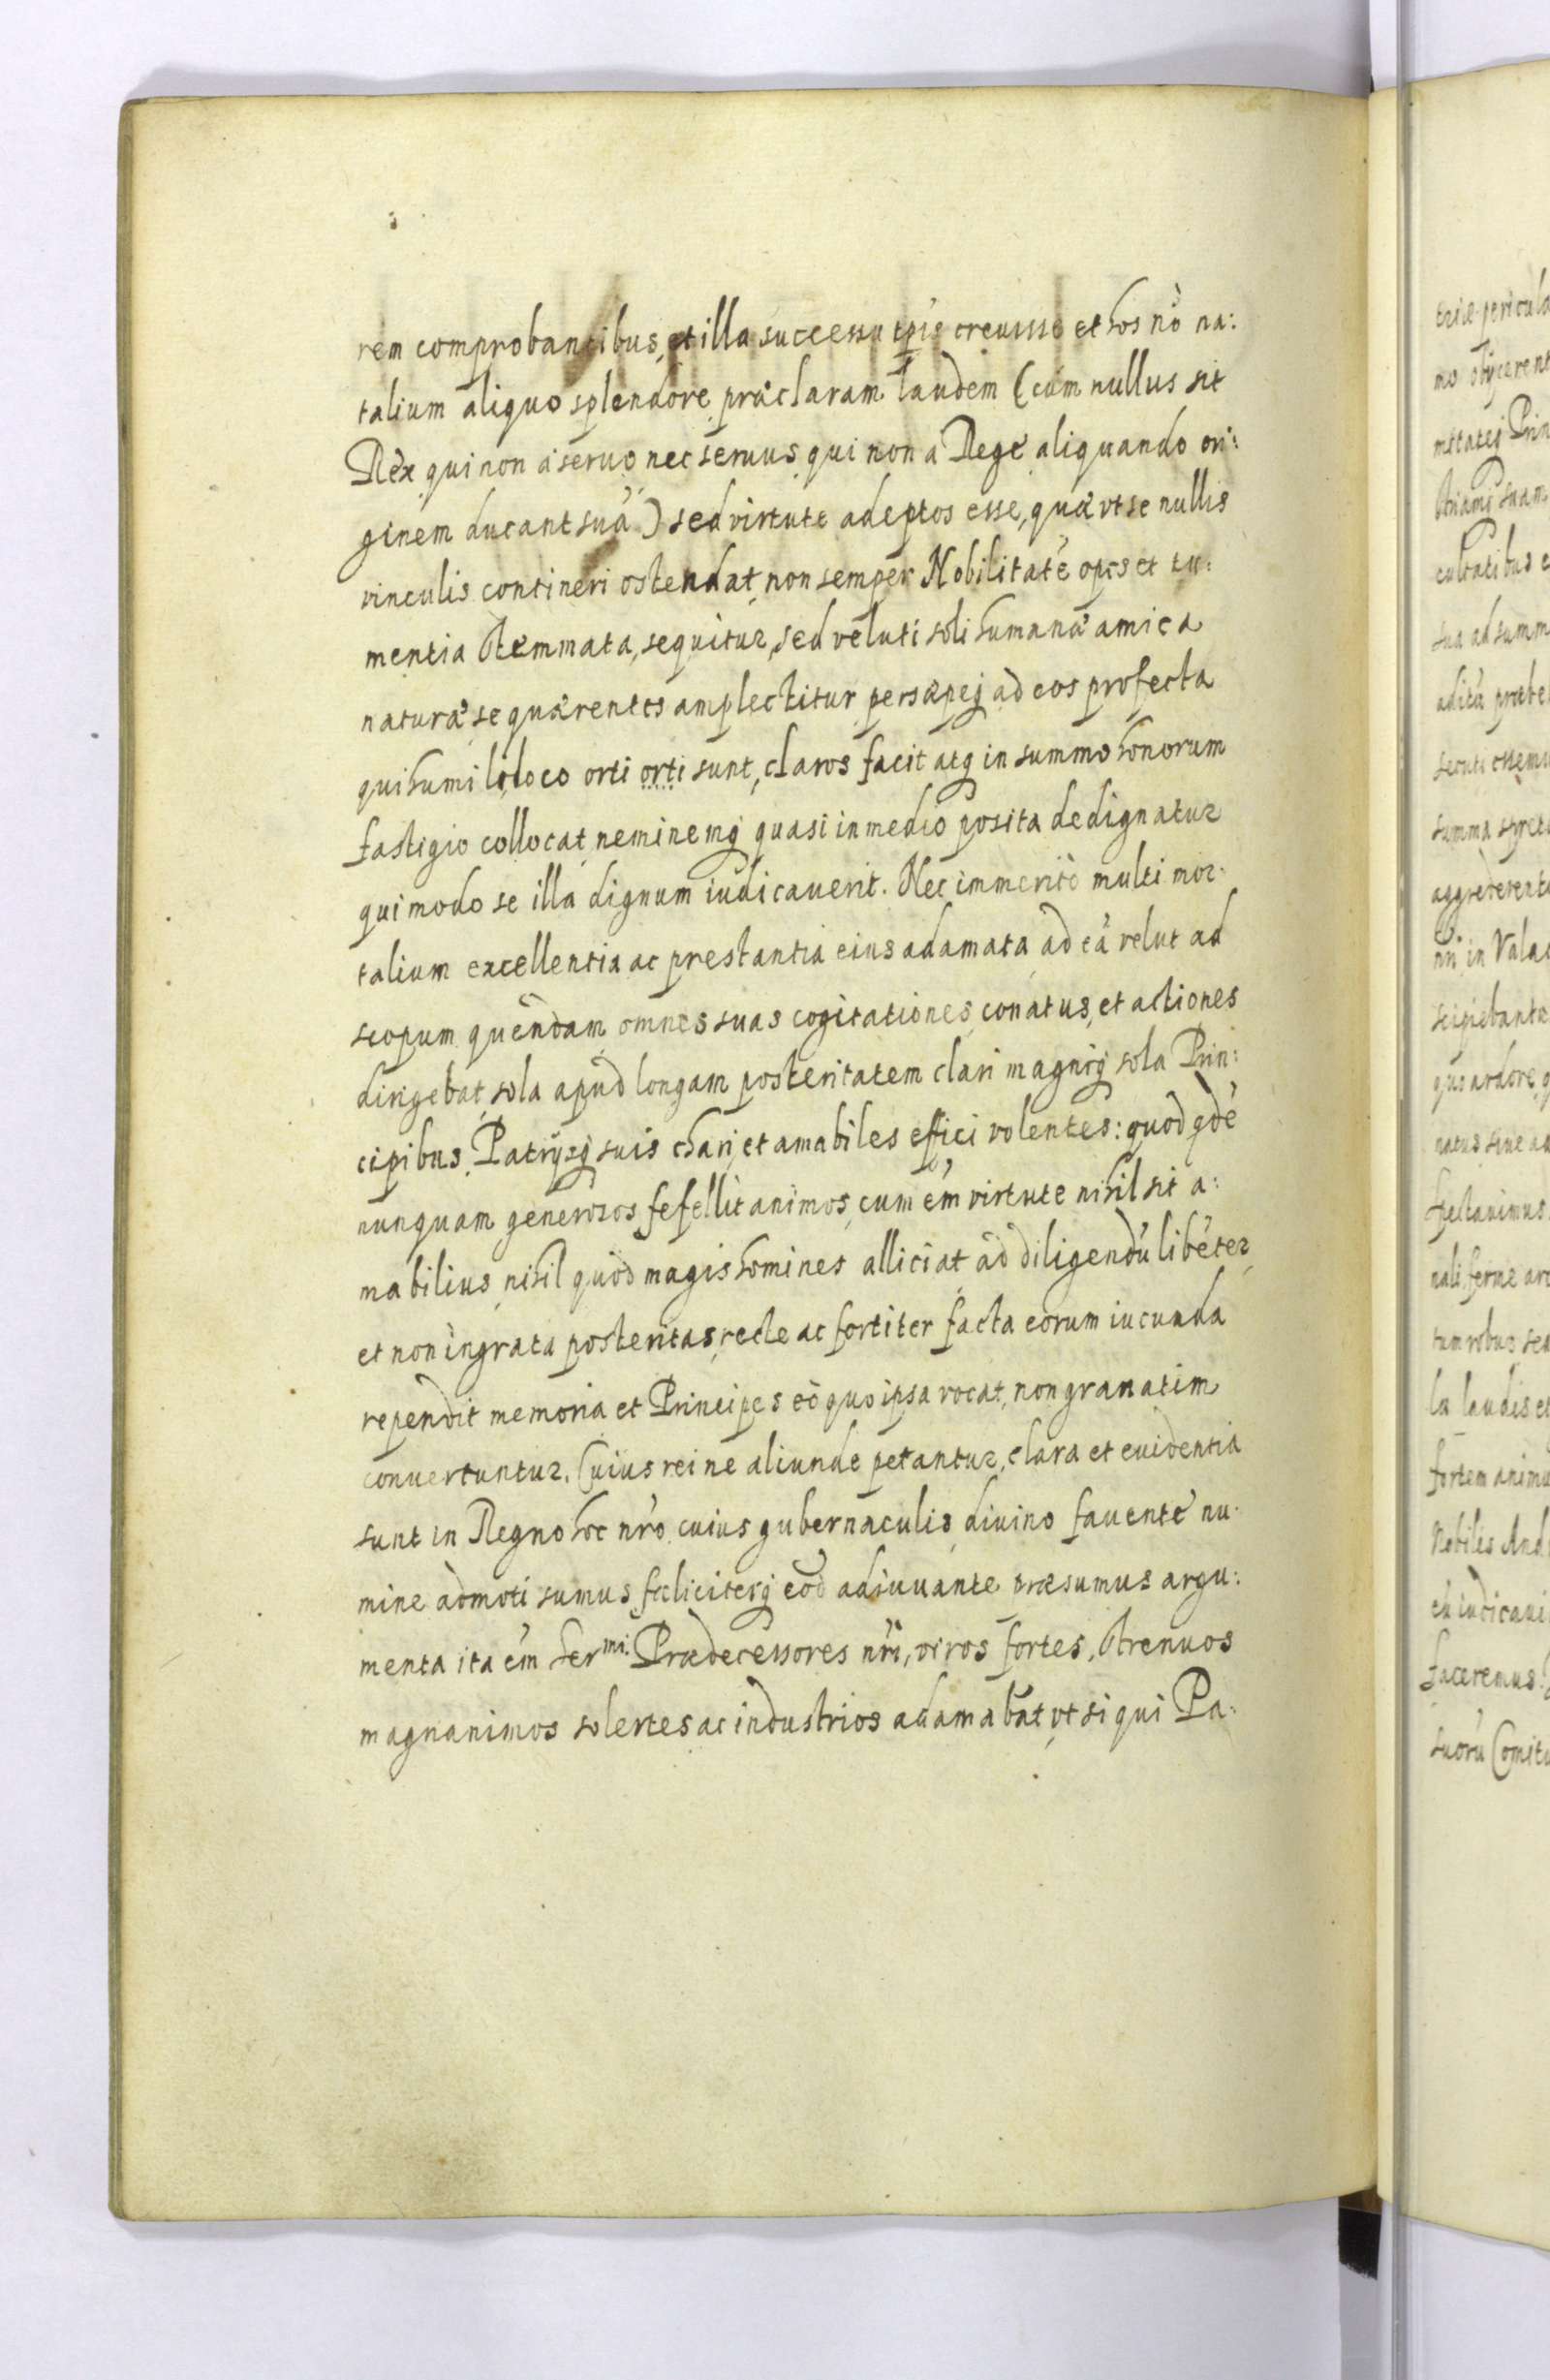 rem comprobantibus, et illa successu tp̃is creuisse et hos nō na:
talium aliquo splendore præclaram laudem (cum nullus sit
Rex qui non a seruo nec seruus qui non a Rege aliquando ori:
ginem ducant suā) sed virtute adeptos esse, quæ vt se nullis
vinculis contineri ostendat, non semper Nobilitatē opes et tu:
mentia stemmata, sequitur, sed veluti soli humanæ amica
naturæ se quærentes amplectitur persæpeq ad eos profecta
qui humili loco orti orti sunt, claros facit atq in summo honorum
fastigio collocat, neminemq quasi in medio posita dedignatur
qui modo se illa dignum iudicauerit. Nec immeritò multi mor:
talium excellentia ac prestantia eius adamata ad eā velut ad
scopum quendam omnes suas cogitationes, conatus, et actiones
dirigebāt, sola apud longam posteritatem clari magniq sola Prin:
cipibus, Patrijsq suis chari, et amabiles effici volentes: quod qdē
nunquam generosos fefellit animos, cum em̃ virtute nihil sit a:
mabilius, nihil quod magis homines alliciat ad diligendū libētes,
et non ingrata posteritas, recte ac fortiter facta eorum iucunda
rependit memoria et Principes eò quo ipsa vocat, non granatim
conuertuntur. Cuius rei ne aliunde petantur, clara et euidentia
sunt in Regno hoc nr̃o cuius gubernaculis, diuino fauente nu:
mine admoti sumus fœliciterq eod adiuuante præsumus argu:
menta ita em̃ Ser^mi: Prædecessores nr̃i, viros fortes, strenuos
magnanimos solertes ac industrios adamabāt, vt si qui Pa:
triæ pericula
mo obijcerent
mitateq Prin
striamq suam
cultatibus e
sua ad summ
aditū præbe
summa spret
aggrederent
in Vala
scipiebant
ardore
natus siue
spectauimus
nali ferme
tum robus sed
la laudis et
fortem animū
Nobilis And
eū iudicaui
faceremus.
suorū Comit